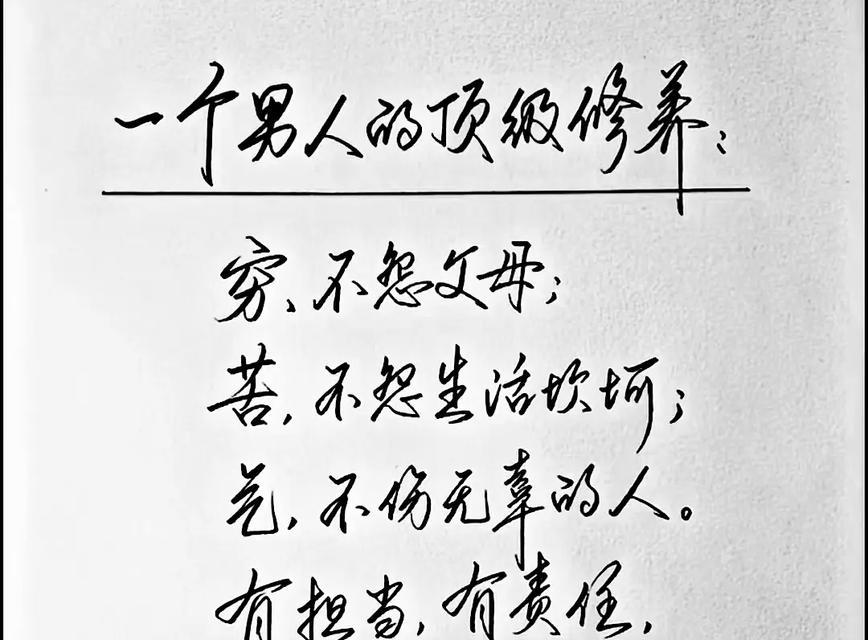 一个男人的顶级修养:
穷、不怨父母;
苦,不怨生活坎坷;
气,不伤无辜的人。
有担当,有责任,